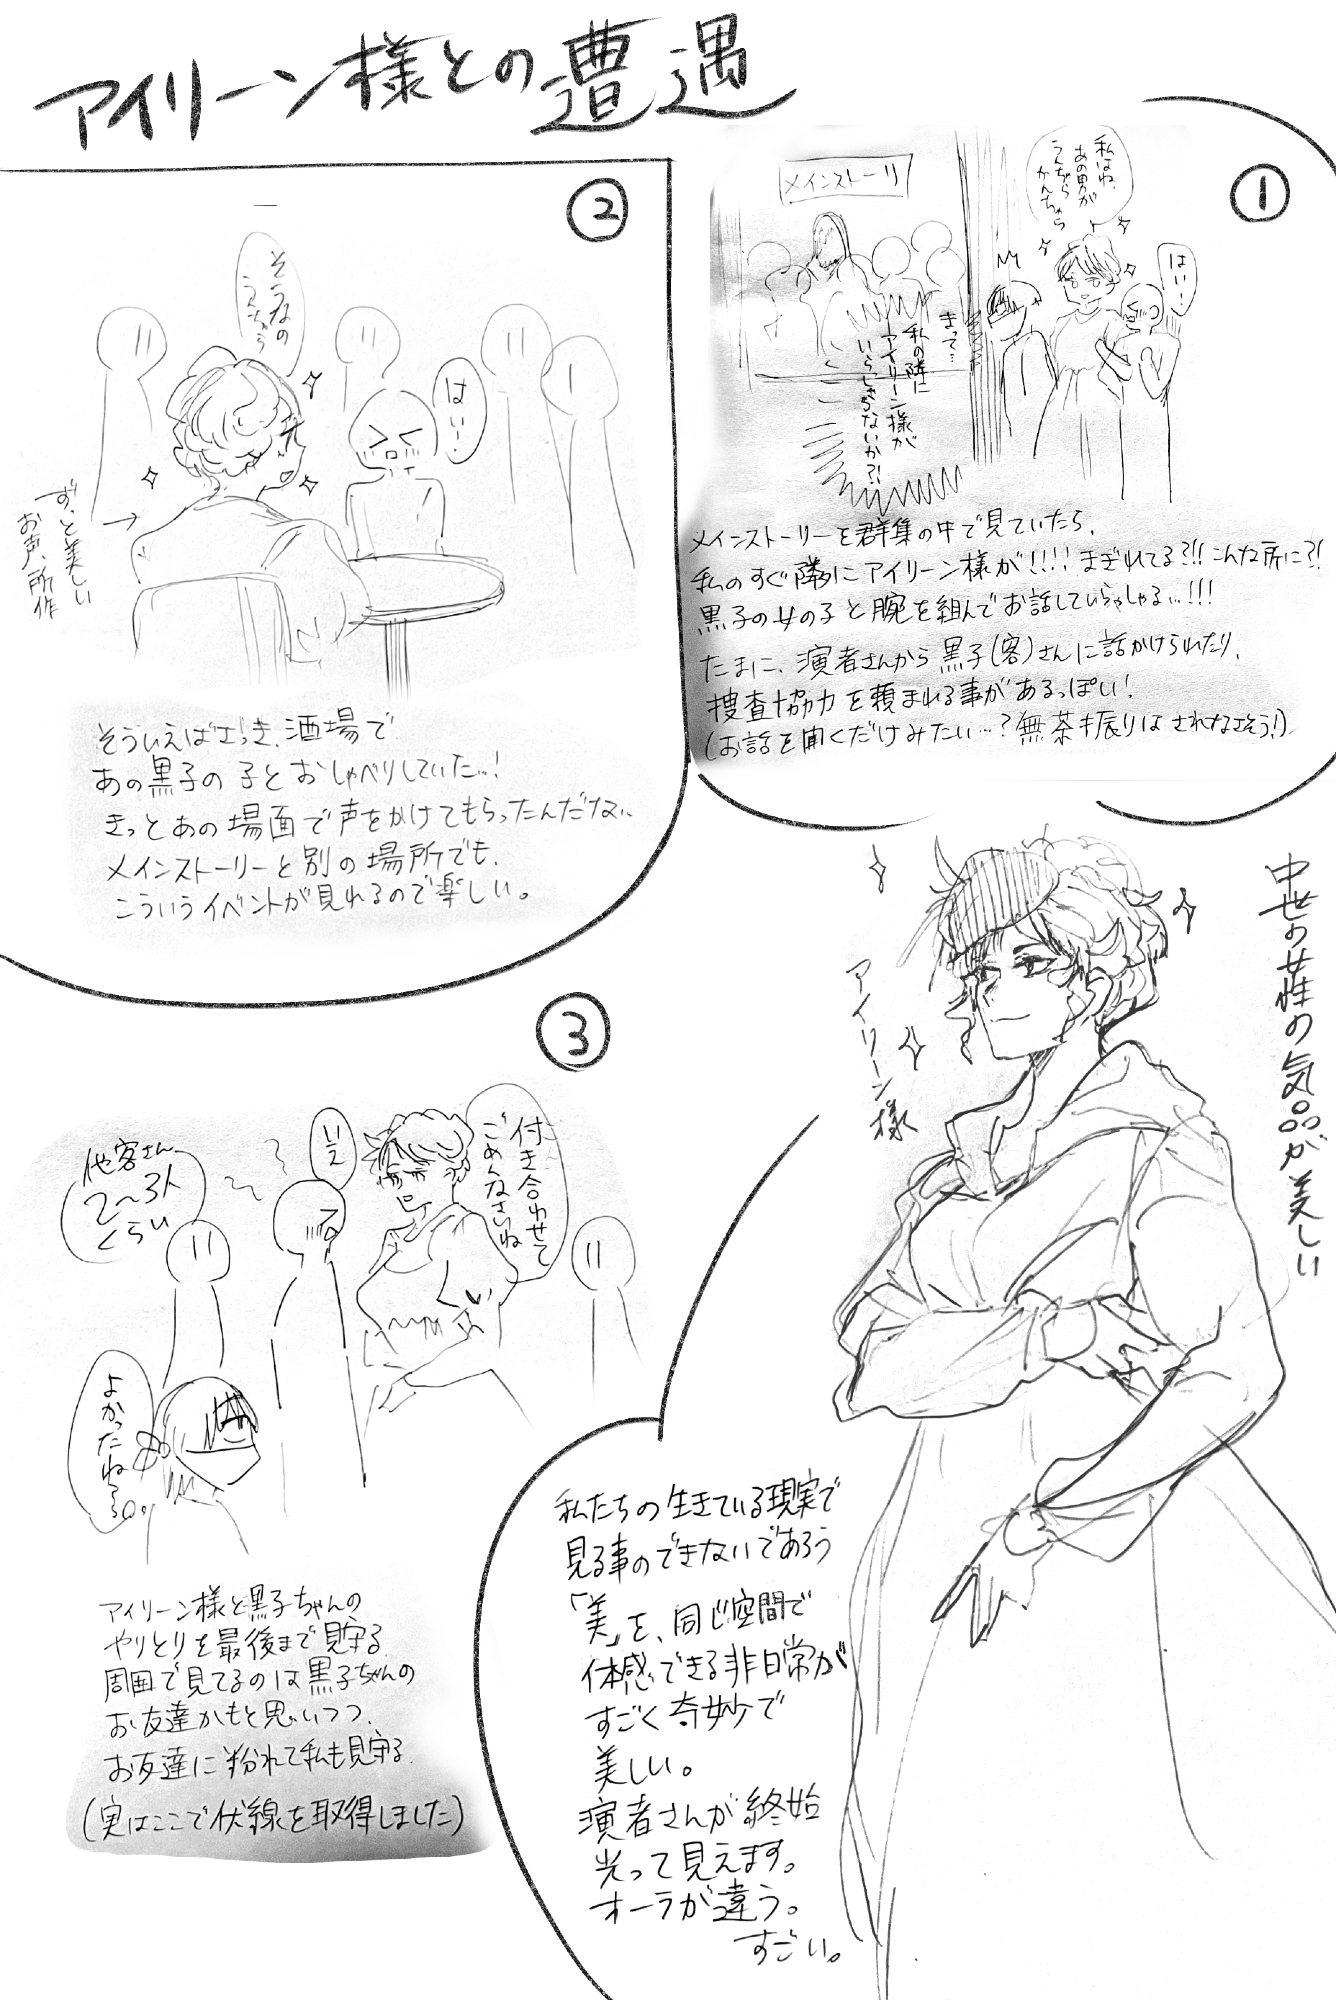 アイリーン様との遭遇
①
メインストーリ
私はね、
あの男が
はい!
まって…
私の隣に
アイリーン様が
いらっしゃらないか?!
メインストーリーを群集の中で見ていたら、
私のすぐ隣にアイリーン様が!!!!まぎれてる?!!こんな所に?!
黒子の女の子と腕を組んでお話していらっしゃる…!!!
たまに、演者さんから黒子(客)さんに話かけられたり、
捜査協力を頼まれる事があるっぽい!
(お話を聞くだけみたい…?無茶振りはされなさそう!)
②
そうなの
はい!
ずっと美しい
お声、所作
そういえばさっき、酒場で
あの黒子の子とおしゃべりしていた…!
きっとあの場面で声をかけてもらったんだな…
メインストーリーと別の場所でも、
こういうイベントが見れるので楽しい。
③
付き合わせて
ごめんなさいね
いえ
他客さん
2〜3人
くらい
よかったねぇ
アイリーン様と黒子ちゃんの
やりとりを最後まで見守る
周囲で見てるのは黒子ちゃんの
お友達かもと思いつつ、
お友達に紛れて私も見守る。
(実はここで伏線を取得しました)
中世の女性の気品が美しい
アイリーン様
私たちの生きている現実で
見る事のできないであろう
「美」を、同じ空間で
体感できる非日常が
すごく奇妙で
美しい。
演者さんが終始
光って見えます。
オーラが違う。
すごい。